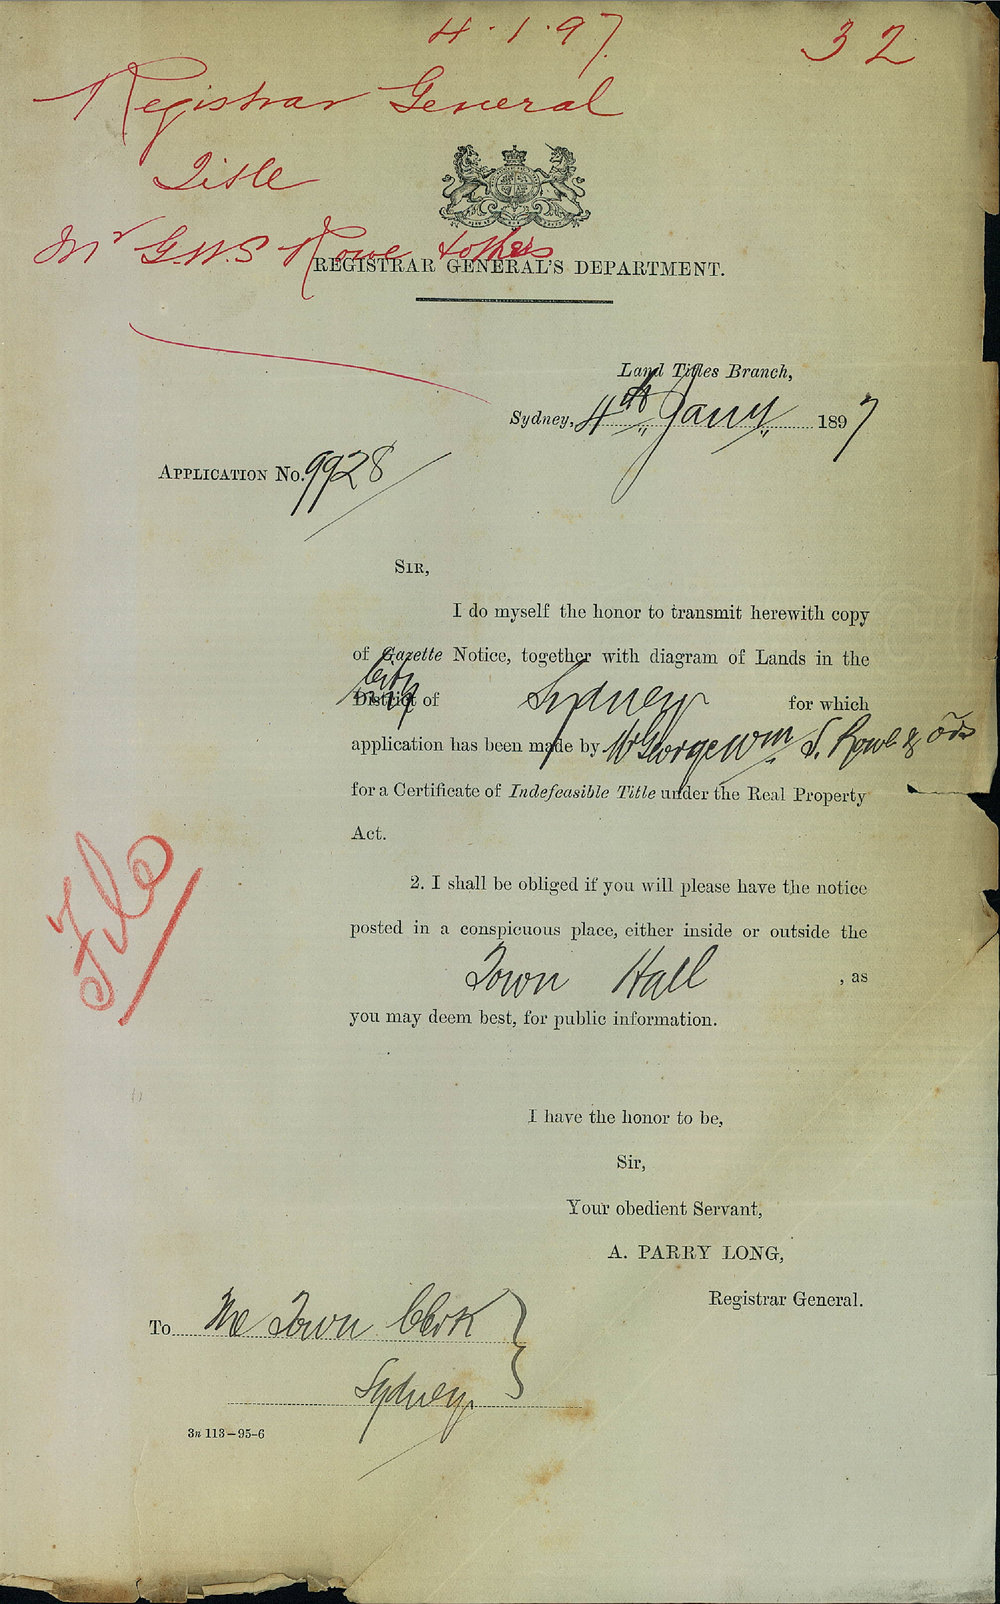 4.1.97.
32
Registrar General
Title
Mr G.W.S Rowe & others
REGISTRAR GENERAL'S DEPARTMENT.
Land Titles Branch,
Sydney, 4th Jany 1897
APPLICATION No. 9928
SIR,
I do myself the honor to transmit herewith copy
of Gazette Notice, together with diagram of Lands in the
City
District of Sydney for which
application has been made by Mr George Wm S. Rowe & ors
for a Certificate of Indefeasible Title under the Real Property
Act.
File
2. I shall be obliged if you will please have the notice
posted in a conspicuous place, either inside or outside the
Town Hall , as
you may deem best, for public information.
I have the honor to be,
Sir,
Your obedient Servant,
A. PARRY LONG,
Registrar General.
To The Town Clerk
Sydney
3n 113—95-6